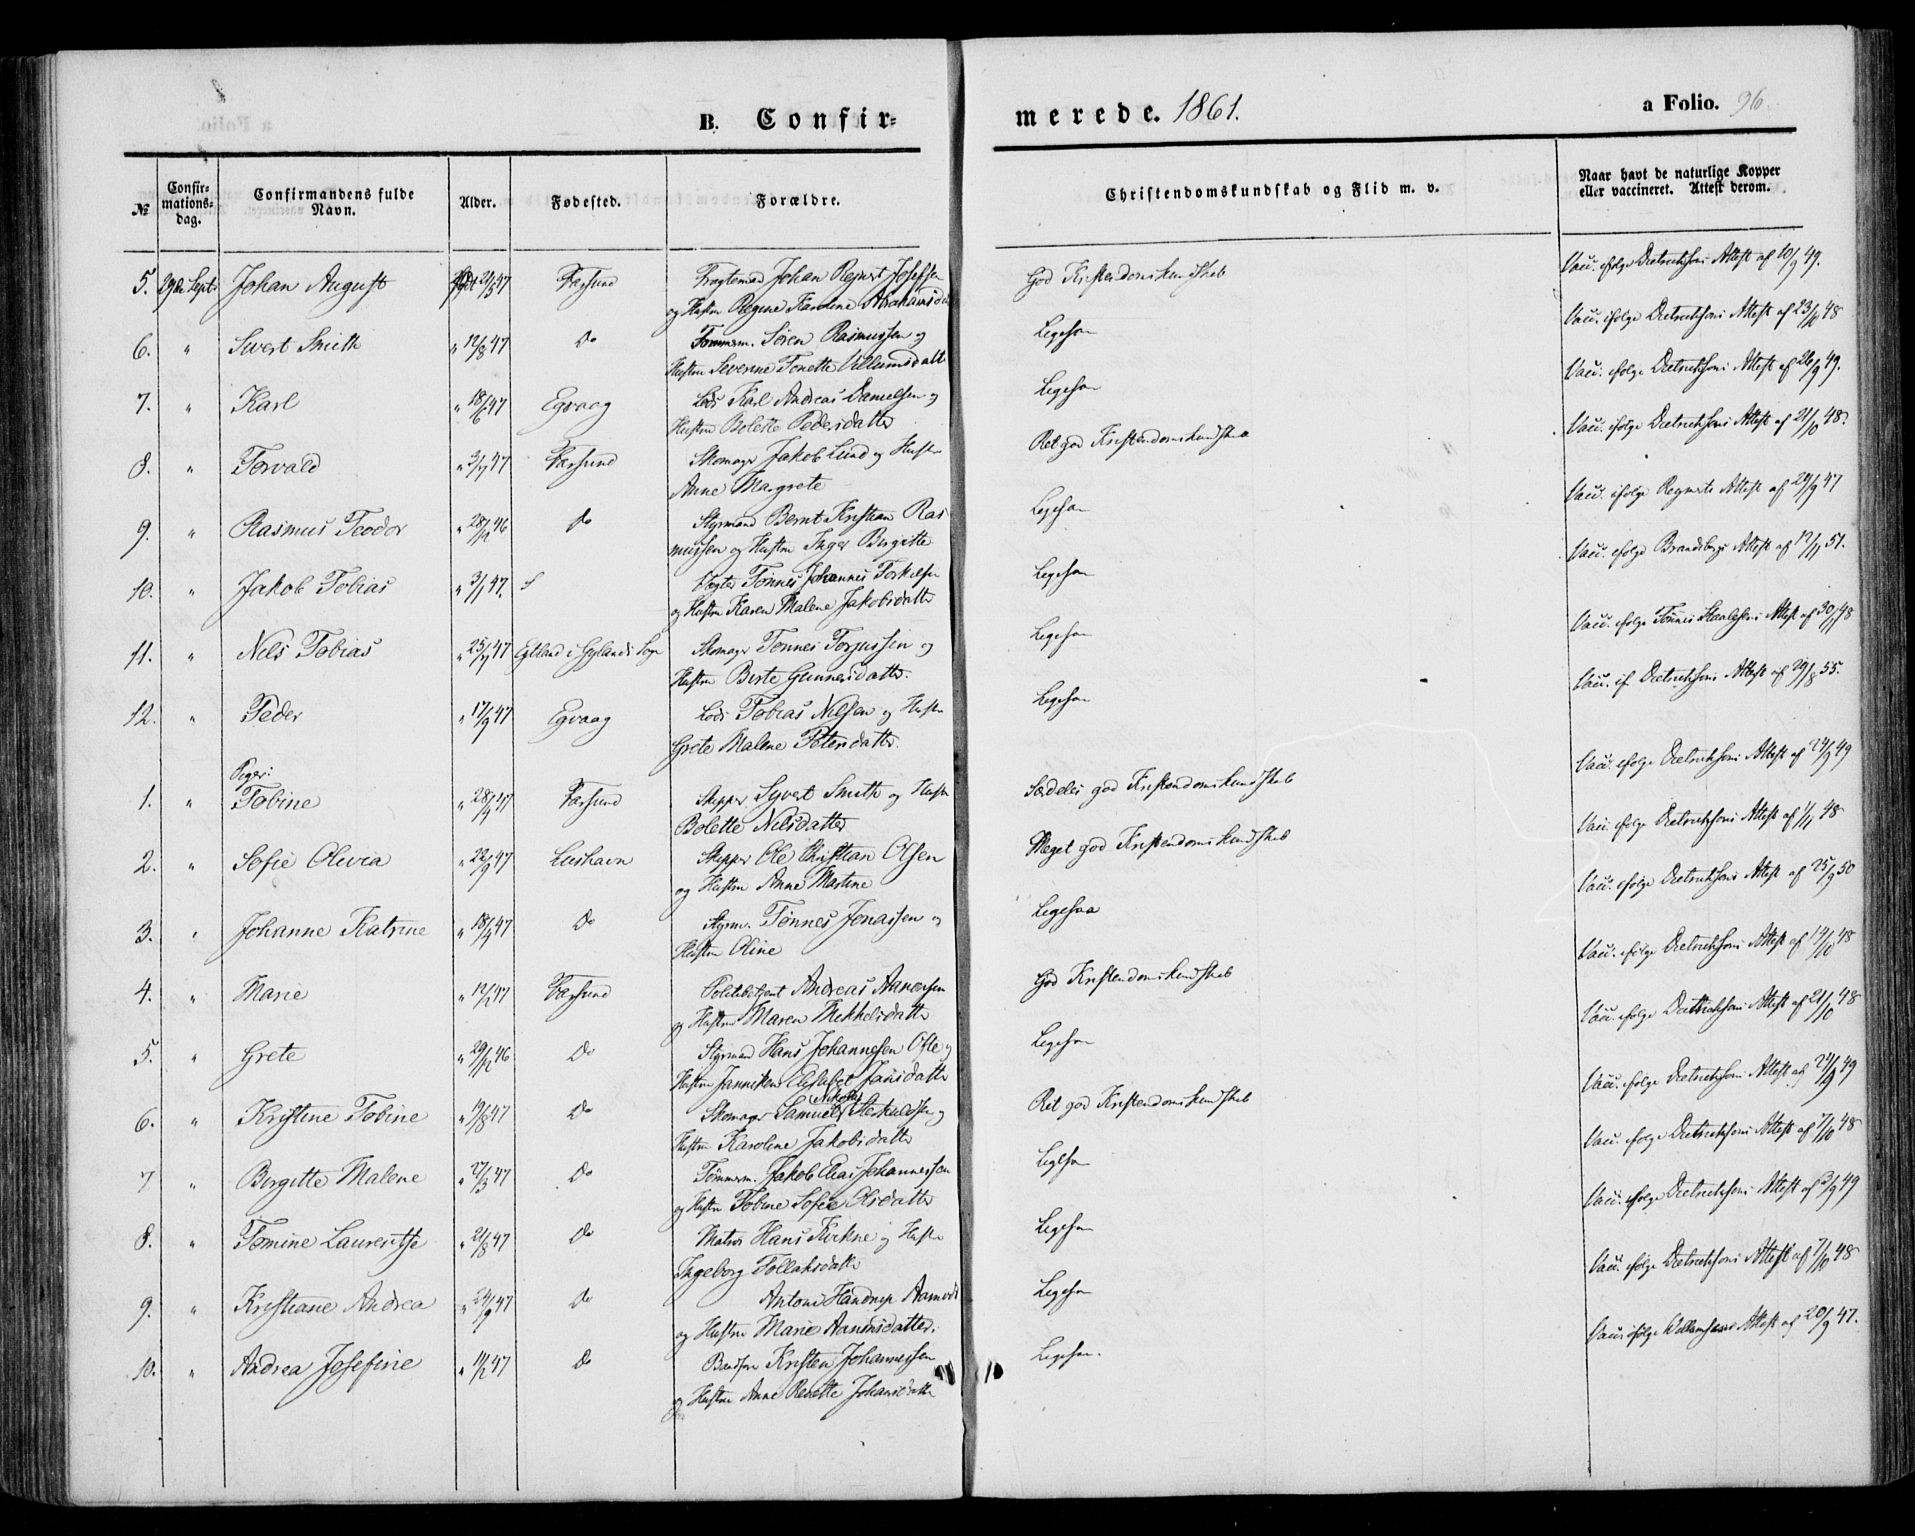 B. Confir=
merede. 1861.
a Folio. 96.
№
Confir-
mations-
dag.
Confirmandens fulde
Navn.
Alder.
Fødested.
Forældre.
Christendomskundskab og Flid m. v.
Naar havt de naturlige Kopper
eller vaccineret. Attest derom.
5. 29de Septr Johan August 21/5 47 Farsund
og Hustru Regine Karoline Abrahamsd
God Kristendomskundskab
Vacc. ifølge Dietrichsons Attest af 10/9 49.
6. " Sivert Smith " 12/8 47 Do Tømmerm. Sören Rasmussen og
Hustru Severine Tonette Villumsdatt
Ligesaa
Vacc. ifølge Dietrichsons Attest af 23/10 48
7. " Karl " 18/6 47 Egvaag Lods Karl Andreas Danielsen og
Hustru Bolette Pedersdatter
Ligesaa
Vacc. ifølge Dietrichsons Attest af 26/9 49.
8. " Torvald " 3/7 47 Farsund Skomager Jakob Lund og Hustru
Anne Margrete
Ret god Kristendomskundskab
Vacc. ifølge Dietrichsons Attest af 21/10 48.
9. " Rasmus Teodor " 28/12 46 Do Styrmand Bernt Kristian Ras
mussen og Hustru Inger Birgitte
Ligesaa
Vacc. ifølge Attest af 29/9 47
10. " Jakob Tobias " 3/1 47. Tønnes Johannes Torkelsen
og Hustru Karen Malene Jakobsdatter
Ligesaa
Vacc. ifølge Brandsbergs Attest af 12/11 51.
11. " Nils Tobias " 25/4 47 i Gylands Sogn Skomager Tønnes Torjussen og
Hustru Berte Gunnersdatter.
Ligesaa
Vacc. ifølge Tønnes Attest af 30/11 48
12. " Peder " 17/9 47 Egvaag Lods Tobias Nilsen og Hustru
Grete Malene Petersdatter.
Ligesaa
Vacc. if. Dietrichsons Attest af 29/8 55.
Piger:
1. " Tobine " 28/4 47 Farsund Skipper Syvert Smith og Hustru
Bolette Nilsdatter
Særdeles god Kristendomskundskab
Vacc. ifølge Dietrichsons Attest af 24/9 49
2. " Sofie Olivia " 22/9 47 Lushavn Skipper Ole Christian Olsen
og Hustru Anne Martine
Meget god Kristendomskundskab
Vacc. ifølge Dietrichsons Attest af 1/11 48
3. " Johanne Katrine " 18/4 47 Do Styrm. Tönnes Jonassen og
Hustru Oline
Ligesaa
Vacc. ifølge Dietrichsons Attest af 25/9 50
4. " Marie " 12/2 47 Farsund Politibetjent Andreas Aanensen
og Hustru Maren Mikkelsdatter
God Kristendomskundskab
Vacc. ifølge Dietrichsons Attest af 14/10 48
5. " Grete " 29/12 46 Do Styrmand Hans Johannesen Ofte og
Hustru Janniken Elisabet Jansdatter
Ligesaa
Vacc. ifølge Dietrichsons Attest af 21/10 48
6. " Kristine Tobine " 19/8 47 Do Skomager Samuel og
Hustru Karoline Jakobsdatter
Ret god Kristendomskundskab
Vacc. ifølge Dietrichsons Attest af 24/9 49
7 " Birgitte Malene " 27/3 47 Do Tømmerm. Jakob Elias Johannessen
og Hustru Tobine Sofie Olsdatter
Ligesaa
Vacc. ifølge Dietrichsons Attest af 7/10 48
8. " Tomine Lauren­tse " 21/8 47 Do Matros Hans og Hustru
Ingeborg Tollaksdatter
Ligesaa
Vacc. ifølge Dietrichsons Attest af 49
9. " Kristiane Andrea " 24/9 47 Do Antoni
og Hustru Marie Aanensdatter.
Ligesaa
Vacc. ifølge Dietrichsons Attest af 7/10 48
10. " Andrea Josefine " 11/2 47 Do Kristen Johannessen
og Hustru Anne Johansdatter
Ligesaa.
Vacc. ifølge Attest af 20/9 47.